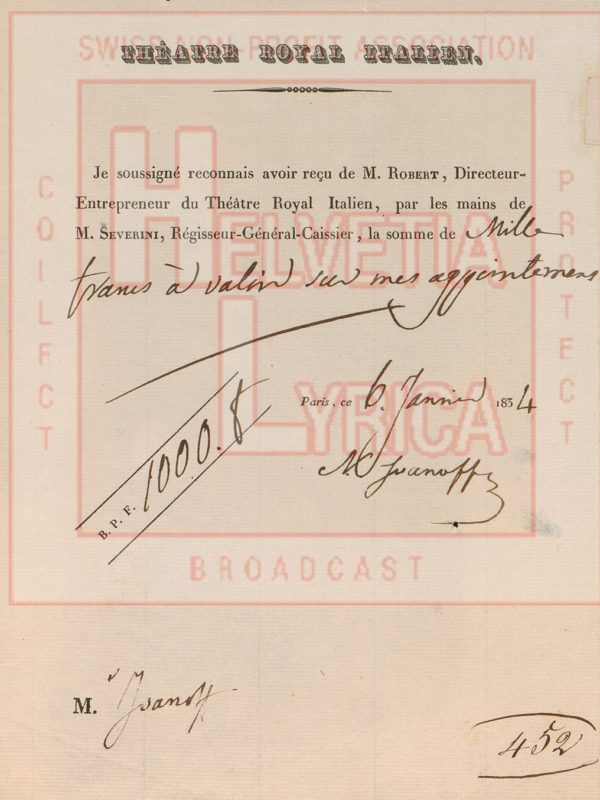 SWISS NON-PROFIT ASSOCIATION
THÉATRE ROYAL ITALIEN.
Je soussigné reconnais avoir reçu de M. ROBERT, Directeur-
Entrepreneur du Théâtre Royal Italien, par les mains de
M. SEVERINI, Régisseur-Général-Caissier, la somme de Mille
francs à valoir sur mes appointemens
HELVETIA
LYRICA
COLLECT
PROTECT
Paris, ce 6. Janvier 1834
B. P. F. 1000. f
N. Ivanoff
BROADCAST
M. Ivanoff
452